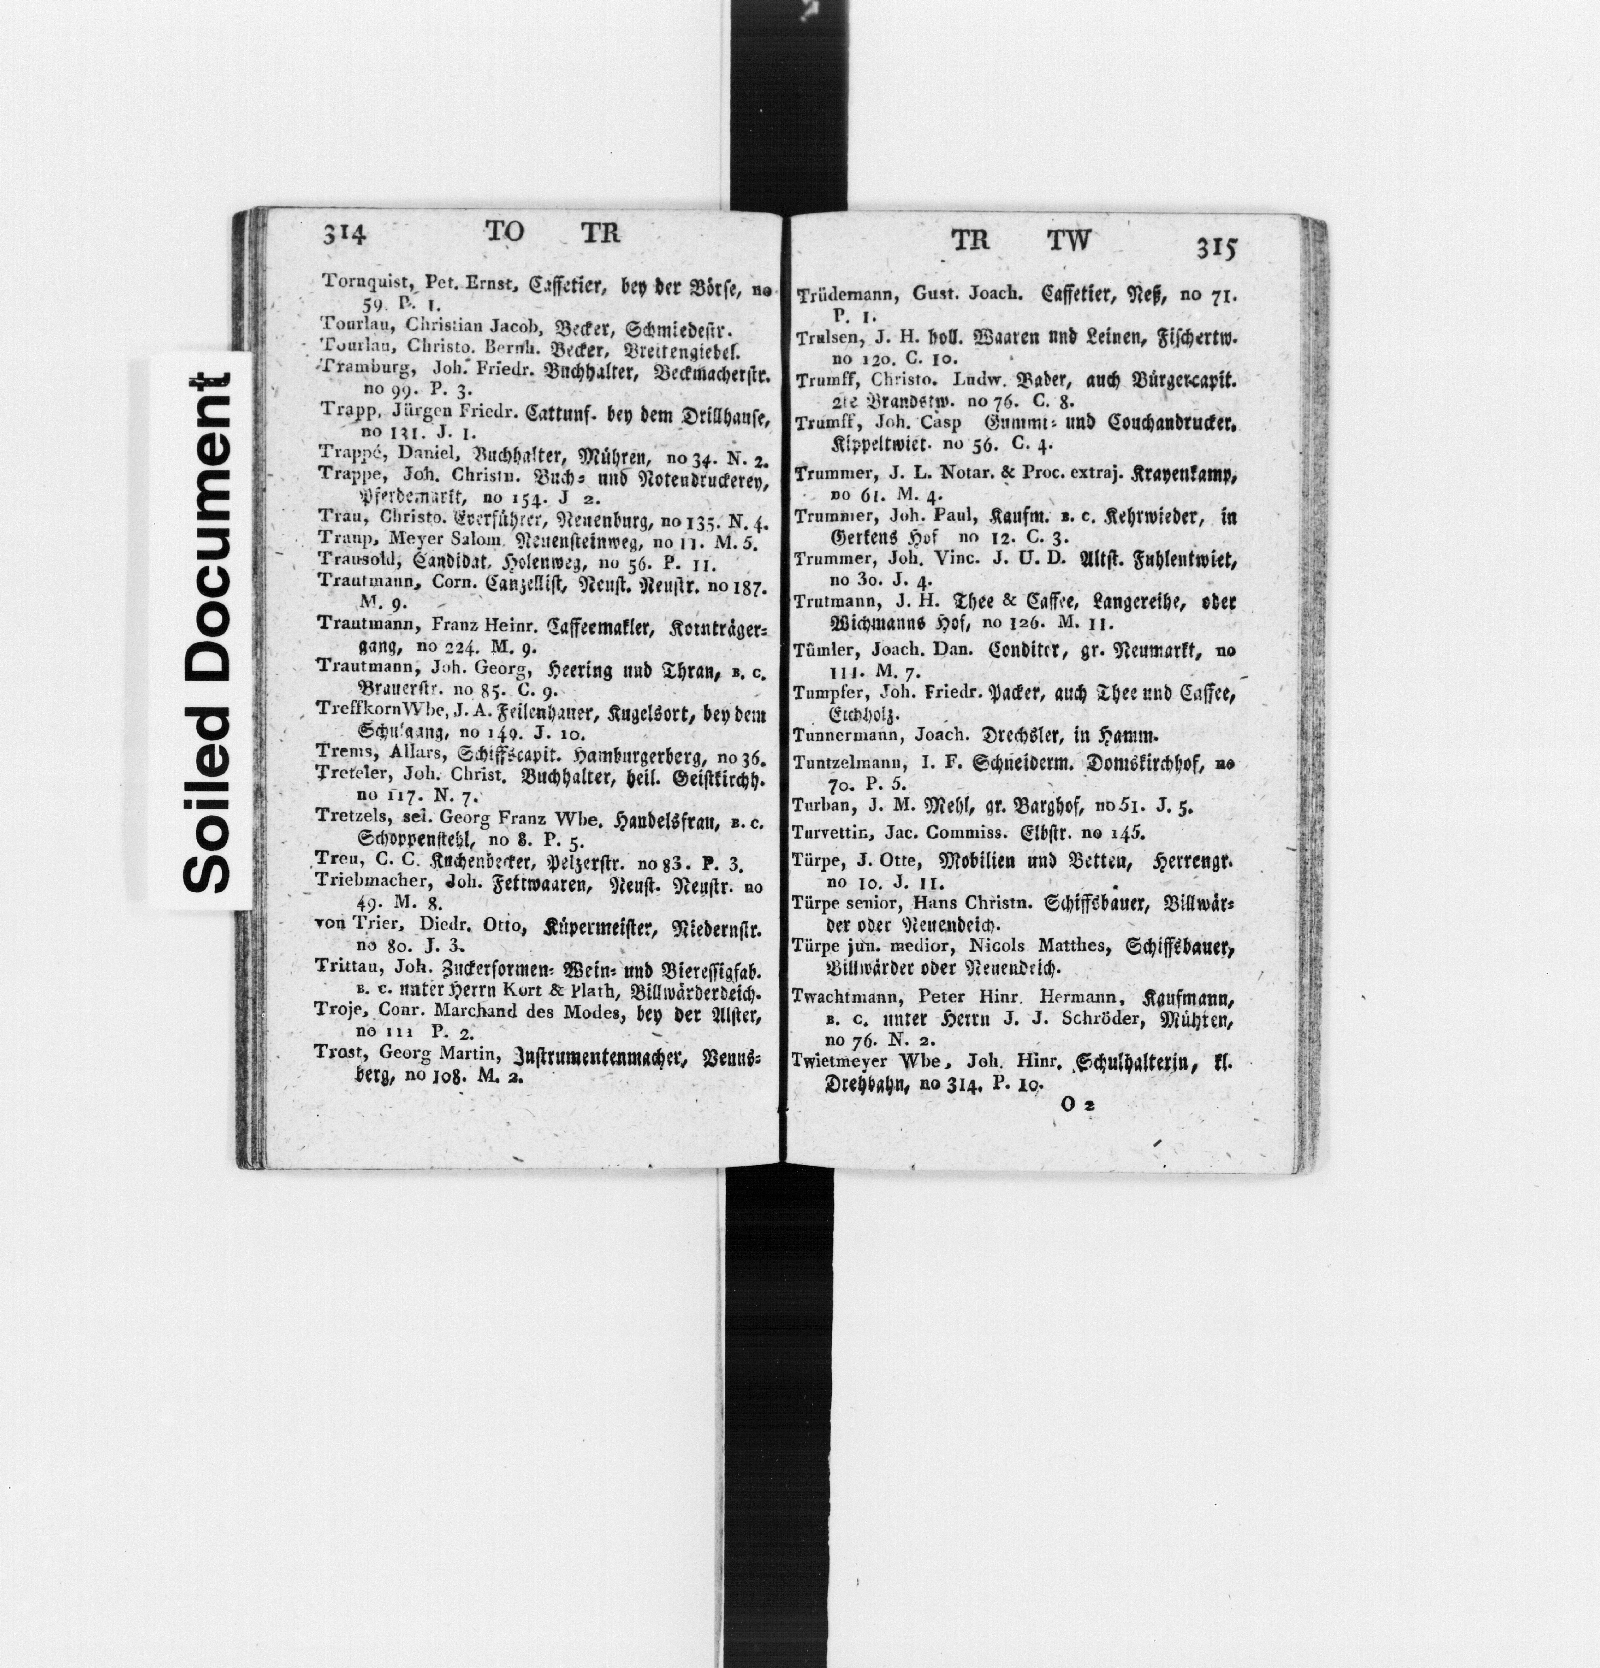 Soiled Document
314 TO TR
Tornquist, Pet. Ernst, Caffetier, bey der Börse, no
59. P. 1.
Tourlau, Christian Jacob, Becker, Schmiedestr.
Tourlau, Christo. Bernh. Becker, Breitengiebel.
Tramburg, Joh. Friedr. Buchhalter, Beckmacherstr.
no 99. P. 3.
Trapp, Jürgen Friedr. Cattunf. bey dem Drillhause,
no 131. J. 1.
Trappé, Daniel, Buchhalter, Mühren, no 34. N. 2.
Trappe, Joh. Christn. Buch- und Notendruckerey,
Pferdemarkt, no 154. J 2.
Trau, Christo. Everführer, Neuenburg, no 135. N. 4.
Traup, Meyer Salom. Neuensteinweg, no 11. M. 5.
Trausold, Candidat, Holenweg, no 56. P. 11.
Trautmann, Corn. Canzellist, Neust. Neustr. no 187.
M. 9.
Trautmann, Franz Heinr. Caffeemakler, Kornträger-
gang, no 224. M. 9.
Trautmann, Joh. Georg, Heering und Thran, B. C.
Brauerstr. no 85. C. 9.
Treffkorn Wbe, J. A. Feilenhauer, Kugelsort, bey dem
Schulgang, no 149. J. 10.
Trems, Allars, Schiffscapit. Hamburgerberg, no 36.
Treteler, Joh. Christ. Buchhalter, heil. Geistkirchh.
no 117. N. 7.
Tretzels, sel. Georg Franz Wbe. Handelsfrau, B. C.
Schoppenstehl, no 8. P. 5.
Treu, C. C. Kuchenbecker, Pelzerstr. no 83. P. 3.
Triebmacher, Joh. Fettwaaren, Neust. Neustr. no
49. M. 8.
von Trier, Diedr. Otto, Küpermeister, Niedernstr.
no 80. J. 3.
Trittau, Joh. Zuckerformen- Wein- und Bieressigfab.
B. C. unter Herrn Kort & Plath, Billwärderdeich.
Troje, Conr. Marchand des Modes, bey der Alster,
no 111 P. 2.
Trost, Georg Martin, Instrumentenmacher, Venus-
berg, no 108. M. 2.
TR TW 315
Trüdemann, Gust. Joach. Caffetier, Neß, no 71.
P. 1.
Trulsen, J. H. holl. Waaren und Leinen, Fischertw.
no 120. C. 10.
Trumff, Christo. Ludw. Bader, auch Bürgercapit.
2te Brandstw. no 76. C. 8.
Trumff, Joh. Casp Gummi- und Couchandrucker,
Kippeltwiet. no 56. C. 4.
Trummer, J. L. Notar. & Proc. extraj. Krayenkamp,
no 61. M. 4.
Trummer, Joh. Paul, Kaufm. B. C. Kehrwieder, in
Gerkens Hof no 12. C. 3.
Trummer, Joh. Vinc. J. U. D. Altst. Fuhlentwiet,
no 30. J. 4.
Trutmann, J. H. Thee & Caffee, Langereihe, oder
Wichmanns Hof, no 126. M. 11.
Tümler, Joach. Dan. Conditor, gr. Neumarkt, no
111. M. 7.
Tumpfer, Joh. Friedr. Packer, auch Thee und Caffee,
Eichholz.
Tunnermann, Joach. Drechsler, in Hamm.
Tuntzelmann, I. F. Schneiderm. Domskirchhof, no
70. P. 5.
Turban, J. M. Mehl, gr. Barghof, no 51. J. 5.
Turvettin, Jac. Commiss. Elbstr. no 145.
Türpe, J. Otte, Mobilien und Betten, Herrengr.
no 10. J. 11.
Türpe senior, Hans Christn. Schiffsbauer, Billwär-
der oder Neuendeich.
Türpe jun. medior, Nicols Matthes, Schiffsbauer,
Billwärder oder Neuendeich.
Twachtmann, Peter Hinr. Hermann, Kaufmann,
B. C. unter Herrn J. J. Schröder, Mühren,
no 76. N. 2.
Twietmeyer Wbe, Joh. Hinr. Schulhalterin, kl.
Drehbahn, no 314. P. 10.
O 2